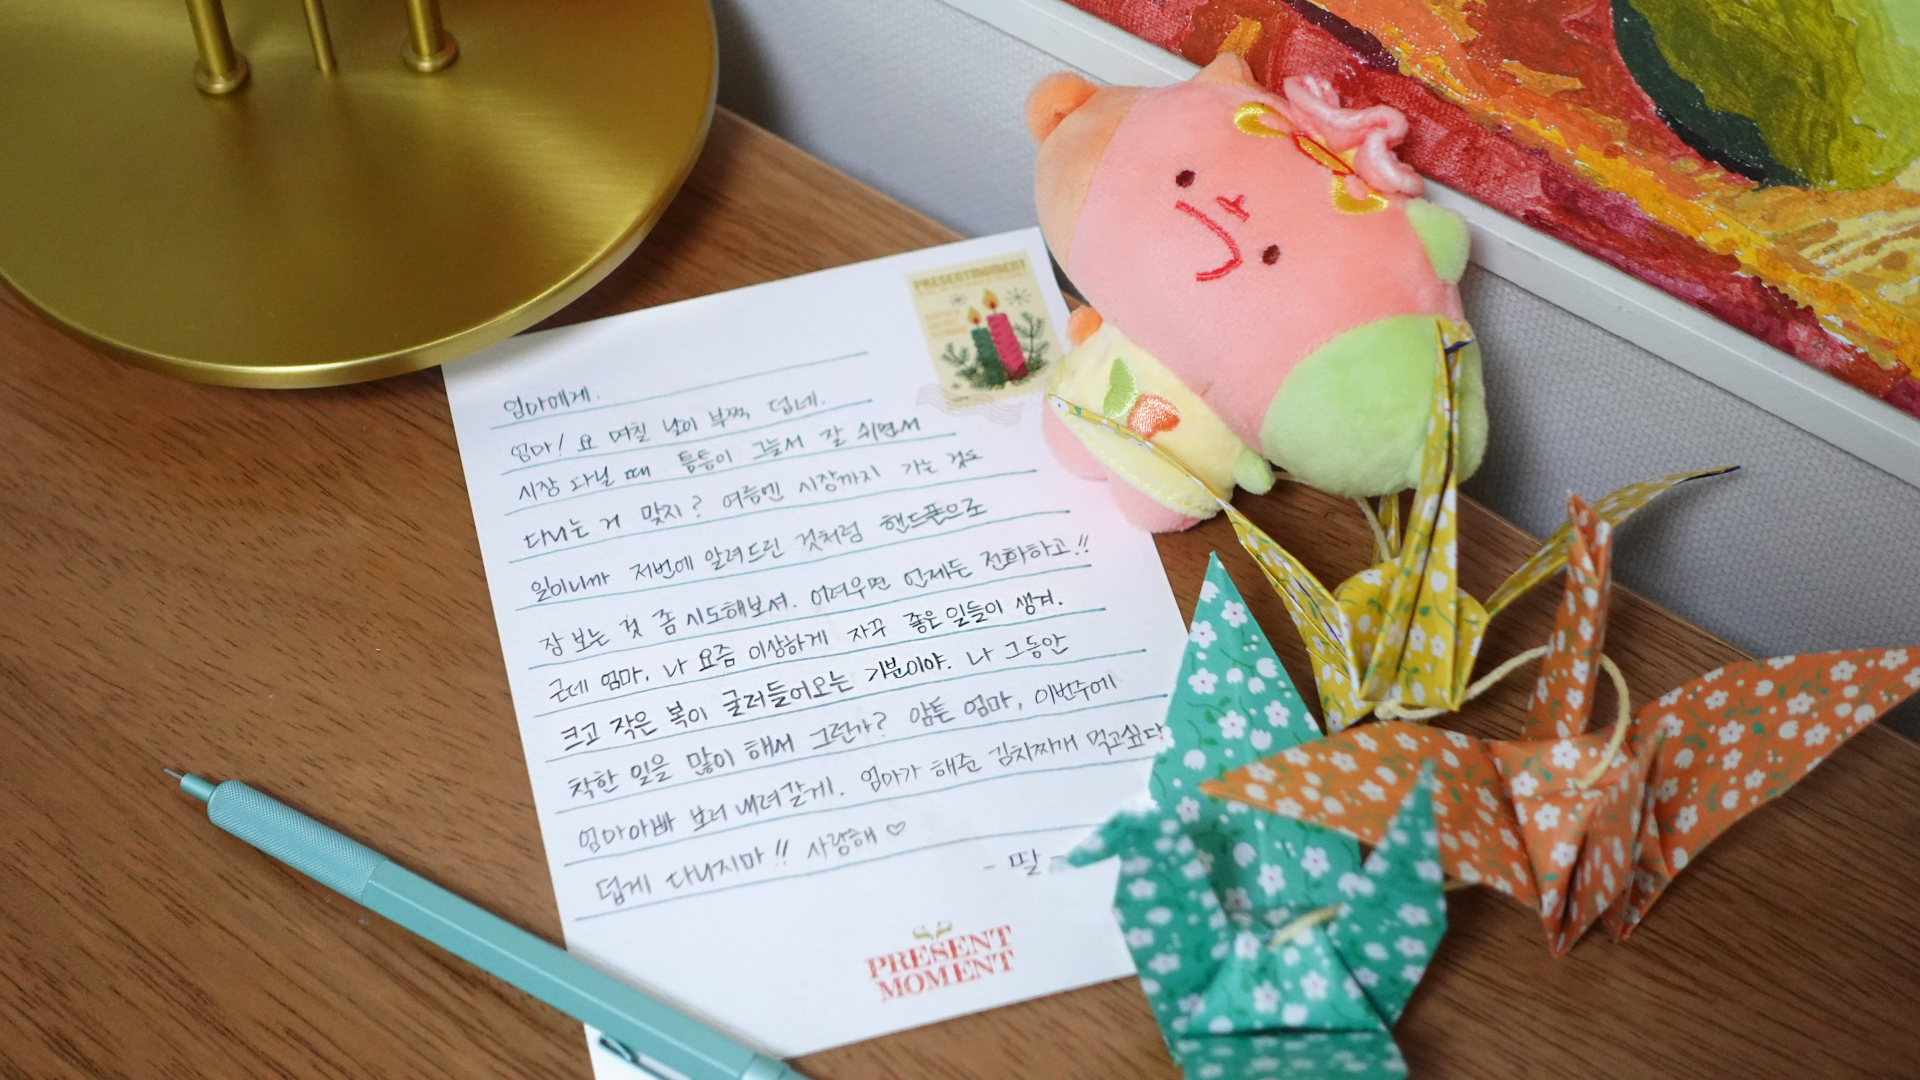 PRESENTMOMENT
엄마에게.
엄마! 요 며칠 날이 부쩍 덥네.
시장 다닐 때 틈틈이 그늘서 잘 쉬면서
다니는 거 맞지? 여름엔 시장까지 가는 것도
일이니까 저번에 알려드린 것처럼 핸드폰으로
장 보는 것 좀 시도해보셔. 어려우면 언제든 전화하고!!
근데 엄마, 나 요즘 이상하게 자꾸 좋은 일들이 생겨.
크고 작은 복이 굴러들어오는 기분이야. 나 그동안
착한 일을 많이 해서 그런가? 암튼 엄마, 이번주에
엄마아빠 보러 내려갈게. 엄마가 해준 김치찌개 먹고싶다
덥게 다니지마!! 사랑해 ♡
- 딸
PRESENT
MOMENT